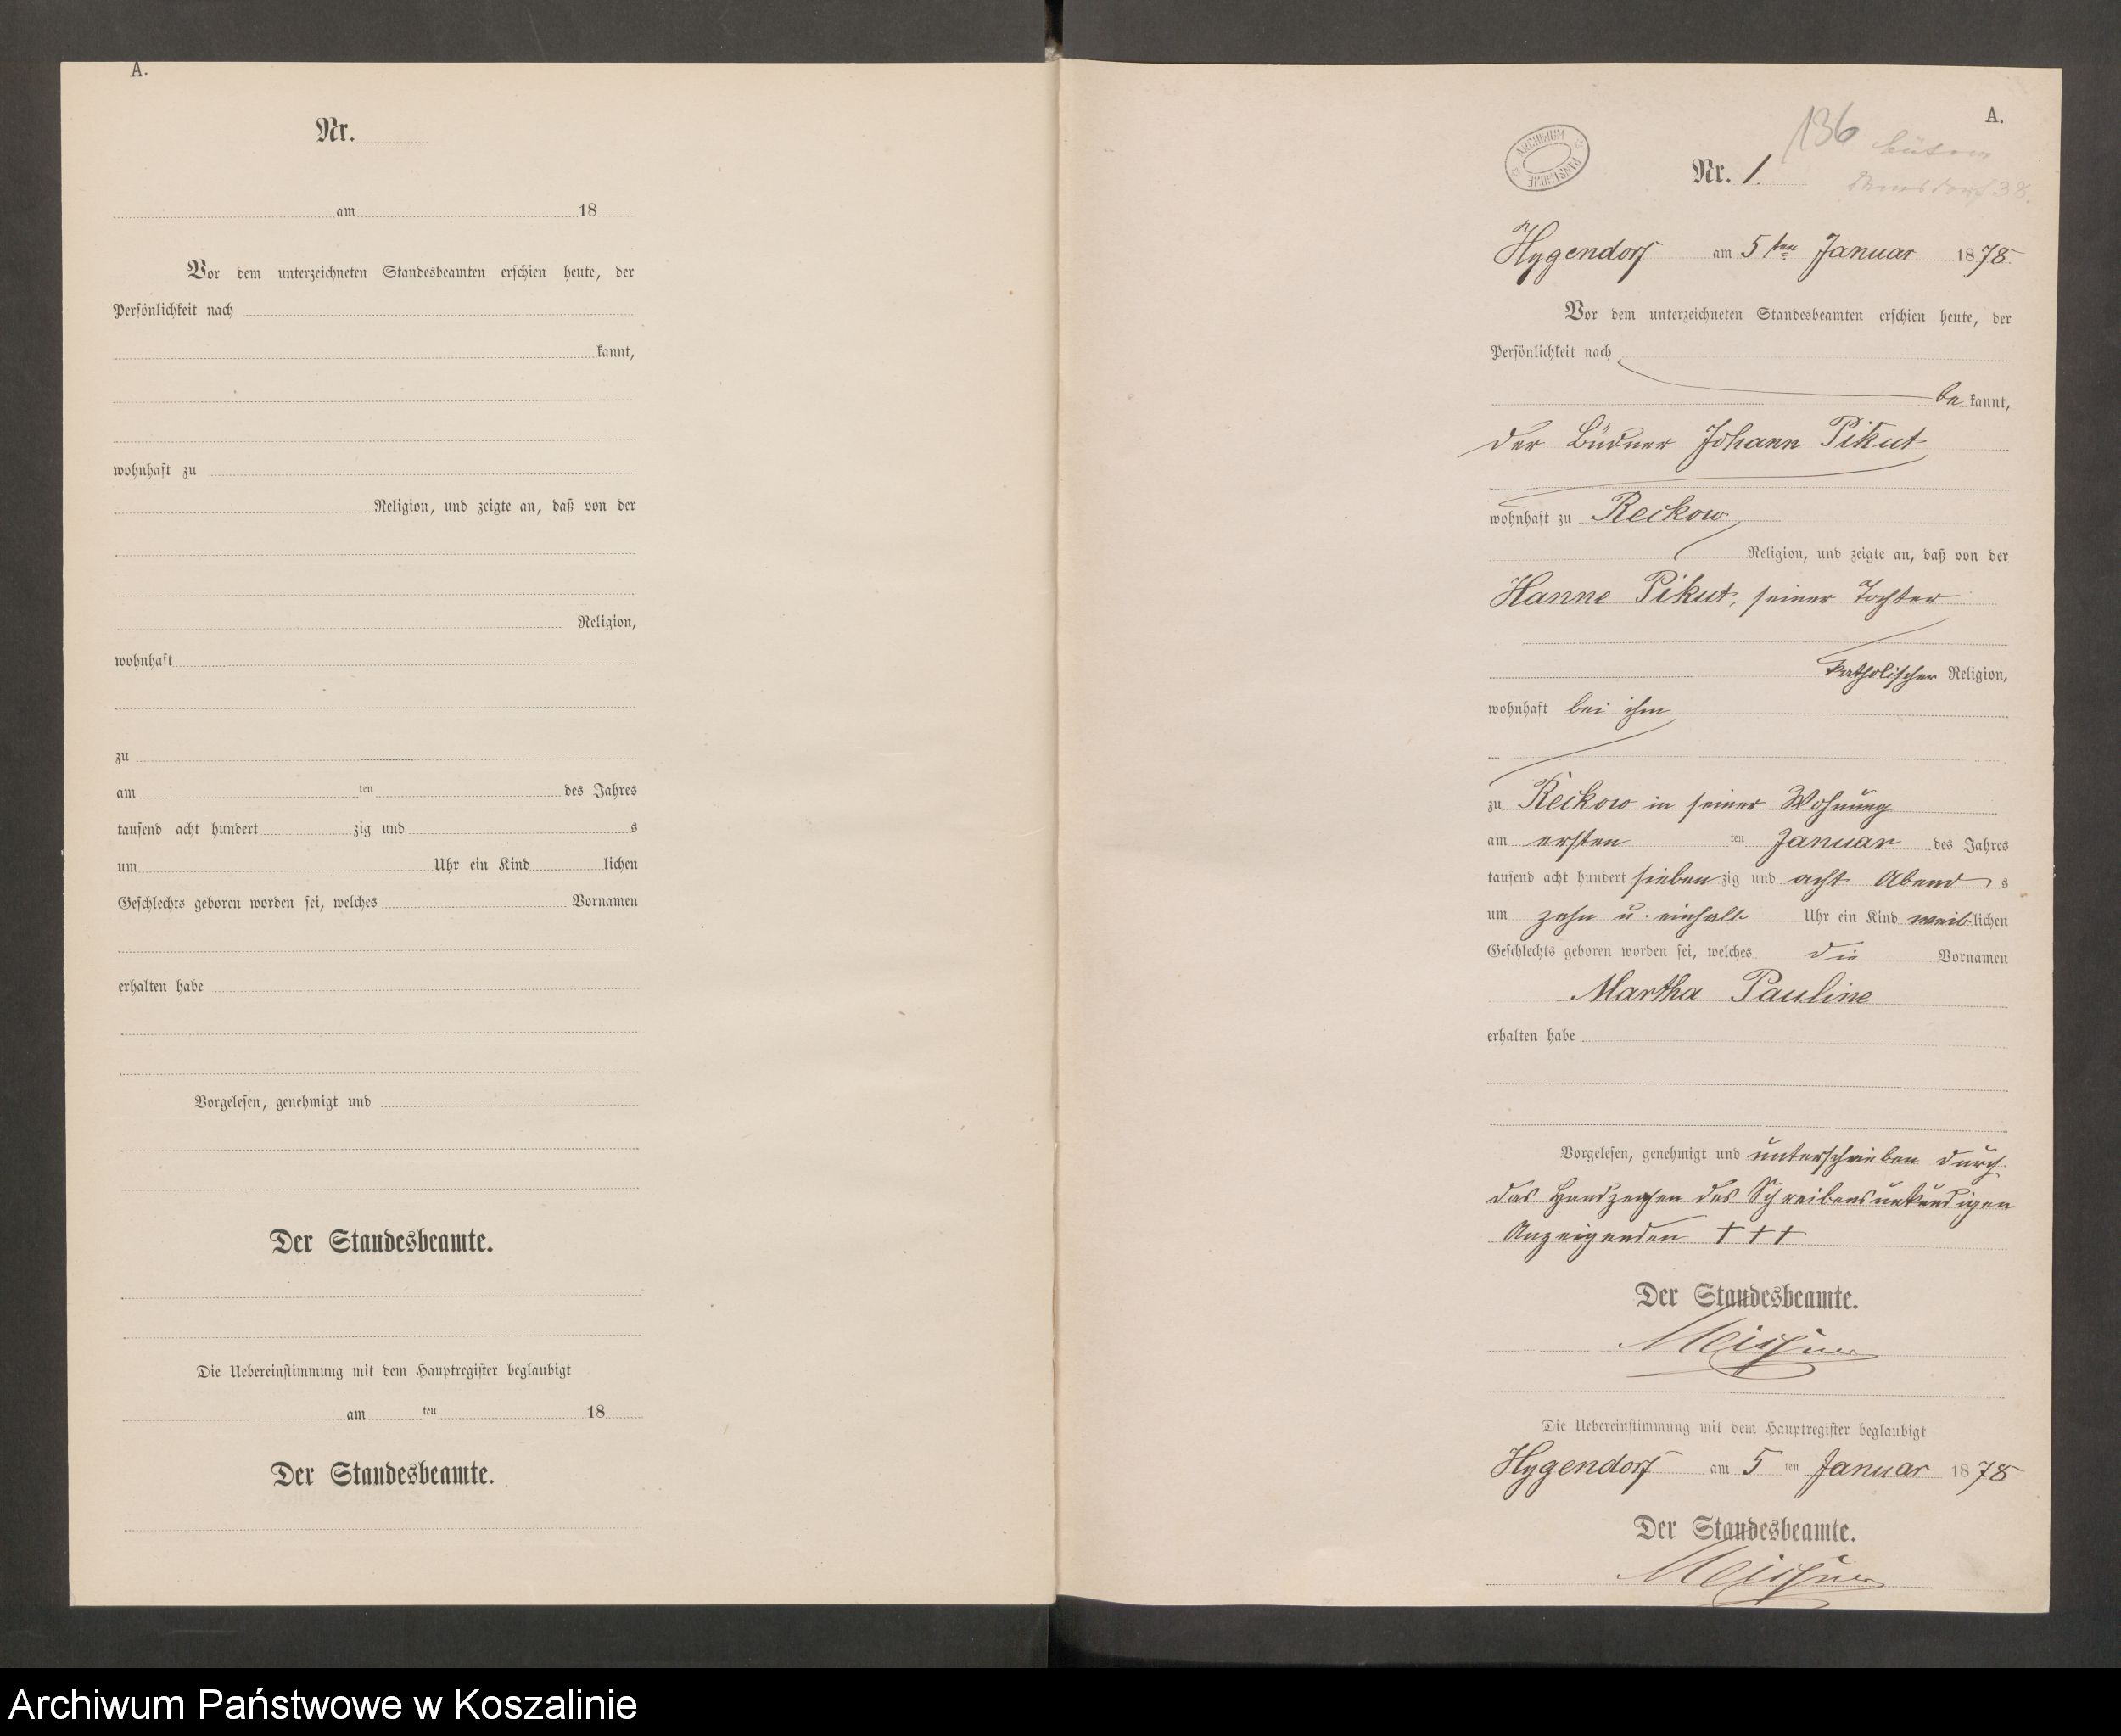 A.
Nr.
am 18
Vor dem unterzeichneten Standesbeamten erschien heute, der
Persönlichkeit nach
kannt,
wohnhaft zu
Religion, und zeigte an, daß von der
Religion,
wohnhaft
zu
am ten des Jahres
tausend acht hundert zig und s
um Uhr ein Kind lichen
Geschlechts geboren worden sei, welches Vornamen
erhalten habe
Vorgelesen, genehmigt und
Der Standesbeamte.
Die Uebereinstimmung mit dem Hauptregister beglaubigt
am ten 18
Der Standesbeamte.
A.
136
ARCHIWUM PAŃSTWOWE
Nr. 1.
Hygendorf am 5ten Januar 1878
Vor dem unterzeichneten Standesbeamten erschien heute, der
Persönlichkeit nach
bekannt,
der Büdner Johann Pikut
wohnhaft zu Reckow
Religion, und zeigte an, daß von der
Hanne Pikut, seiner Tochter
katholischer Religion,
wohnhaft bei ihm
zu Reckow in seiner Wohnung
am ersten ten Januar des Jahres
tausend acht hundert siebenzig und acht Abends
um zehn u. einhalb Uhr ein Kind weiblichen
Geschlechts geboren worden sei, welches die Vornamen
Martha Pauline
erhalten habe
Vorgelesen, genehmigt und unterschrieben durch
das Handzeichen des Schreibensunkundigen
Anzeigenden +++
Der Standesbeamte.
Die Uebereinstimmung mit dem Hauptregister beglaubigt
Hygendorf am 5 ten Januar 1878
Der Standesbeamte.
Archiwum Państwowe w Koszalinie